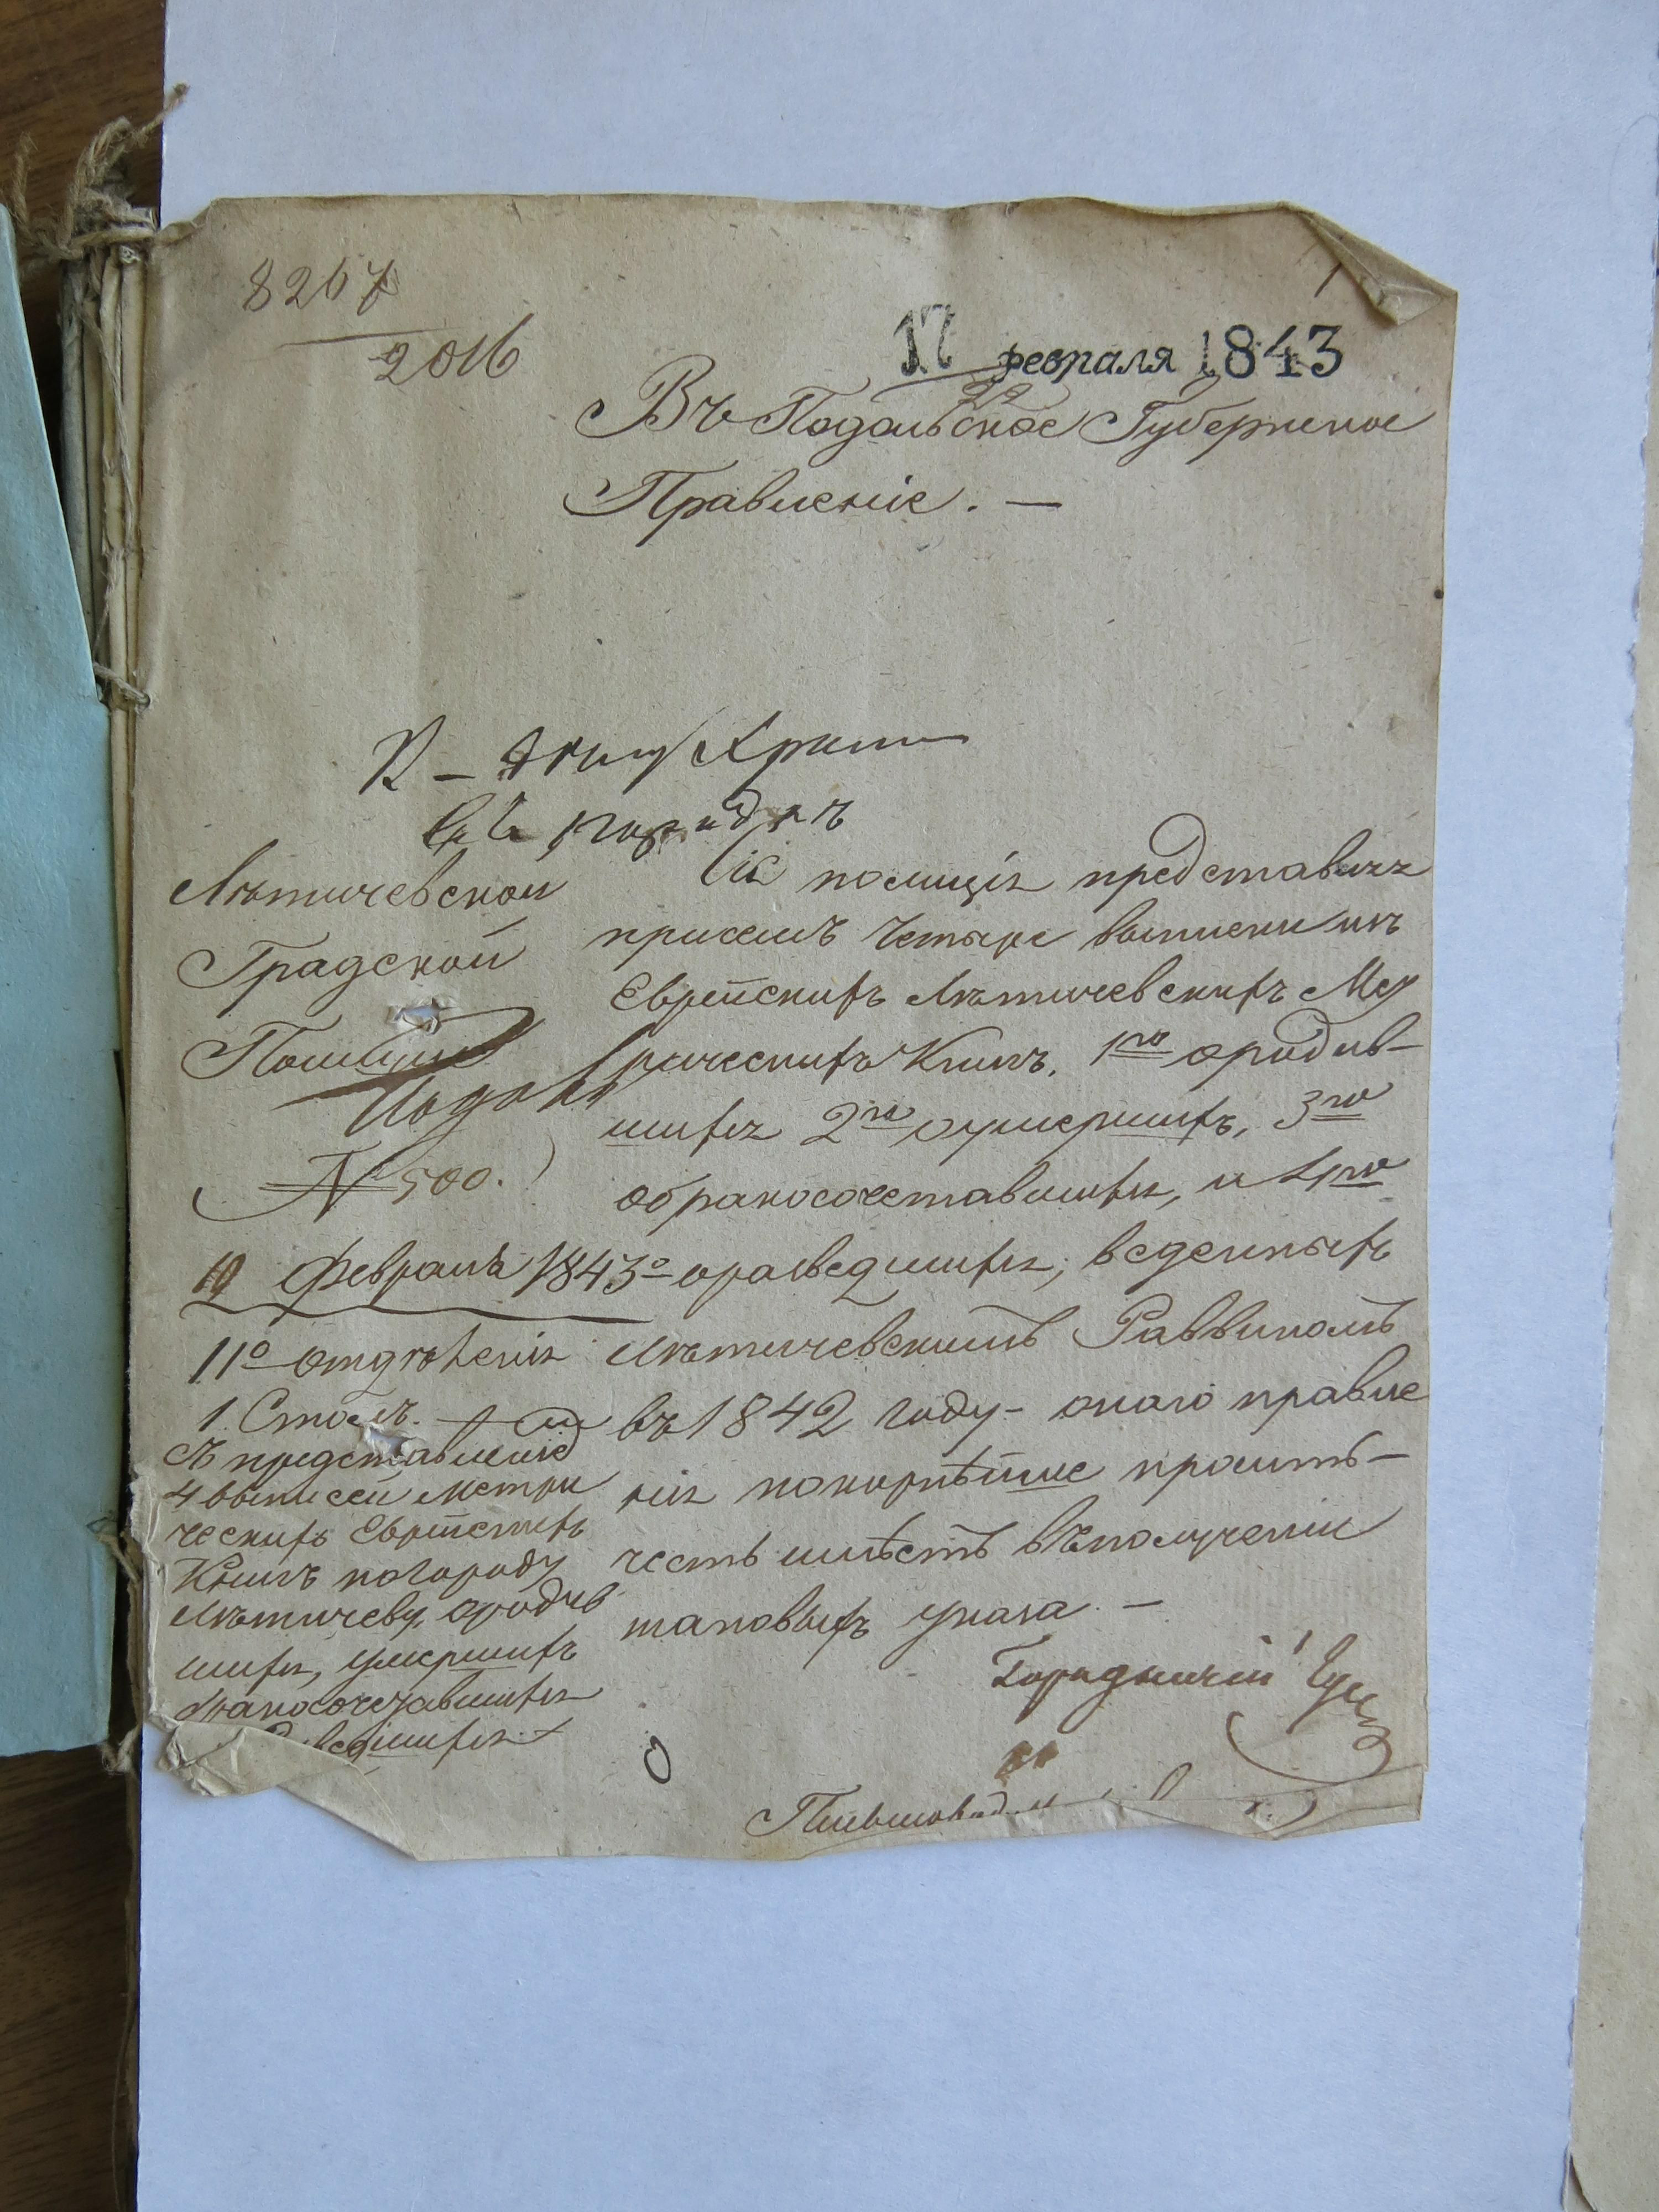 8267
2016
17 февраля 1843
Въ Подольское Губернское
Правленіе. —
Летичевской
Градской
Полиціи
N 500.
10 Февраля 1843го
1го отделенія
1. Столъ.
съ представленіемъ
4 выписей метри
ческихъ Еврейскихъ
Книгъ по городу
Летичеву, о родив
шихся, умершихъ
бракосочетавшихся
Сія полиція представляя
при семъ четыре выписки изъ
Еврейскихъ Летичевскихъ Мет
рическихъ Книгъ, 1ю о родив-
шихся 2ю о умершихъ, 3ю
о бракосочетавшихся, и 4ю
о разведшихся, веденныхъ
Летичевскимъ Раввиномъ
въ 1842 году — оного правле
нія покорнѣйше просить —
честь имѣетъ въ полученіи
таковыхъ указа. —
Городничій